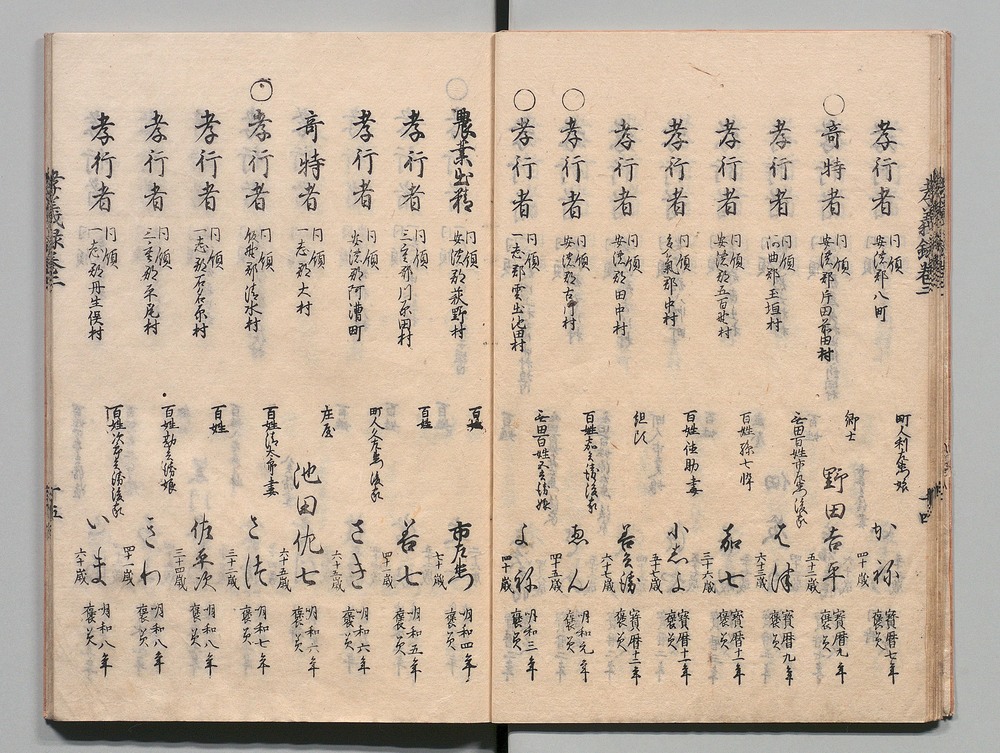 孝行者 同領 安濃郡八町 町人利左衛門娘 かね 四十歳 寶暦七年 褒美
○奇特者 同領 安濃郡片田 郷士 野田吉平 五十二歳 寶暦九年 褒美
孝行者 同領 河曲郡玉垣村 無田百姓 後家 六十三歳 寶暦九年 褒美
孝行者 同領 安濃郡五百野村 百姓孫七悴 加七 三十六歳 寶暦十一年 褒美
孝行者 同領 多気郡中村 百姓佐助妻 五十歳 寶暦十一年 褒美
孝行者 同領 安濃郡田中村 組頭 善兵衛 六十歳 寶暦十二年 褒美
○孝行者 同領 安濃郡 百姓 後家 ゑん 明和元年 褒美
○孝行者 同領 一志郡雲出池田村 無田百姓 娘 よね 四十歳 明和三年 褒美
孝義録巻二 十四
○農業出精 同領 安濃郡萩野村 百姓 市左衛門 七十歳 明和四年 褒美
孝行者 同領 三重郡川原田村 百姓 善七 四十一歳 明和五年 褒美
孝行者 同領 安濃郡阿漕町 町人 後家 さき 六十六歳 明和六年 褒美
奇特者 同領 一志郡大村 庄屋 池田忠七 六十五歳 明和六年 褒美
○孝行者 同領 飯野郡清水村 百姓 妻 さ 三十二歳 明和七年 褒美
孝行者 同領 一志郡 百姓 佐平次 三十四歳 明和八年 褒美
孝行者 同領 三重郡平尾村 百姓 娘 きわ 四十一歳 明和八年 褒美
孝行者 同領 一志郡丹生俣村 百姓 後家 いま 六十歳 明和八年 褒美
孝義録巻二 十五